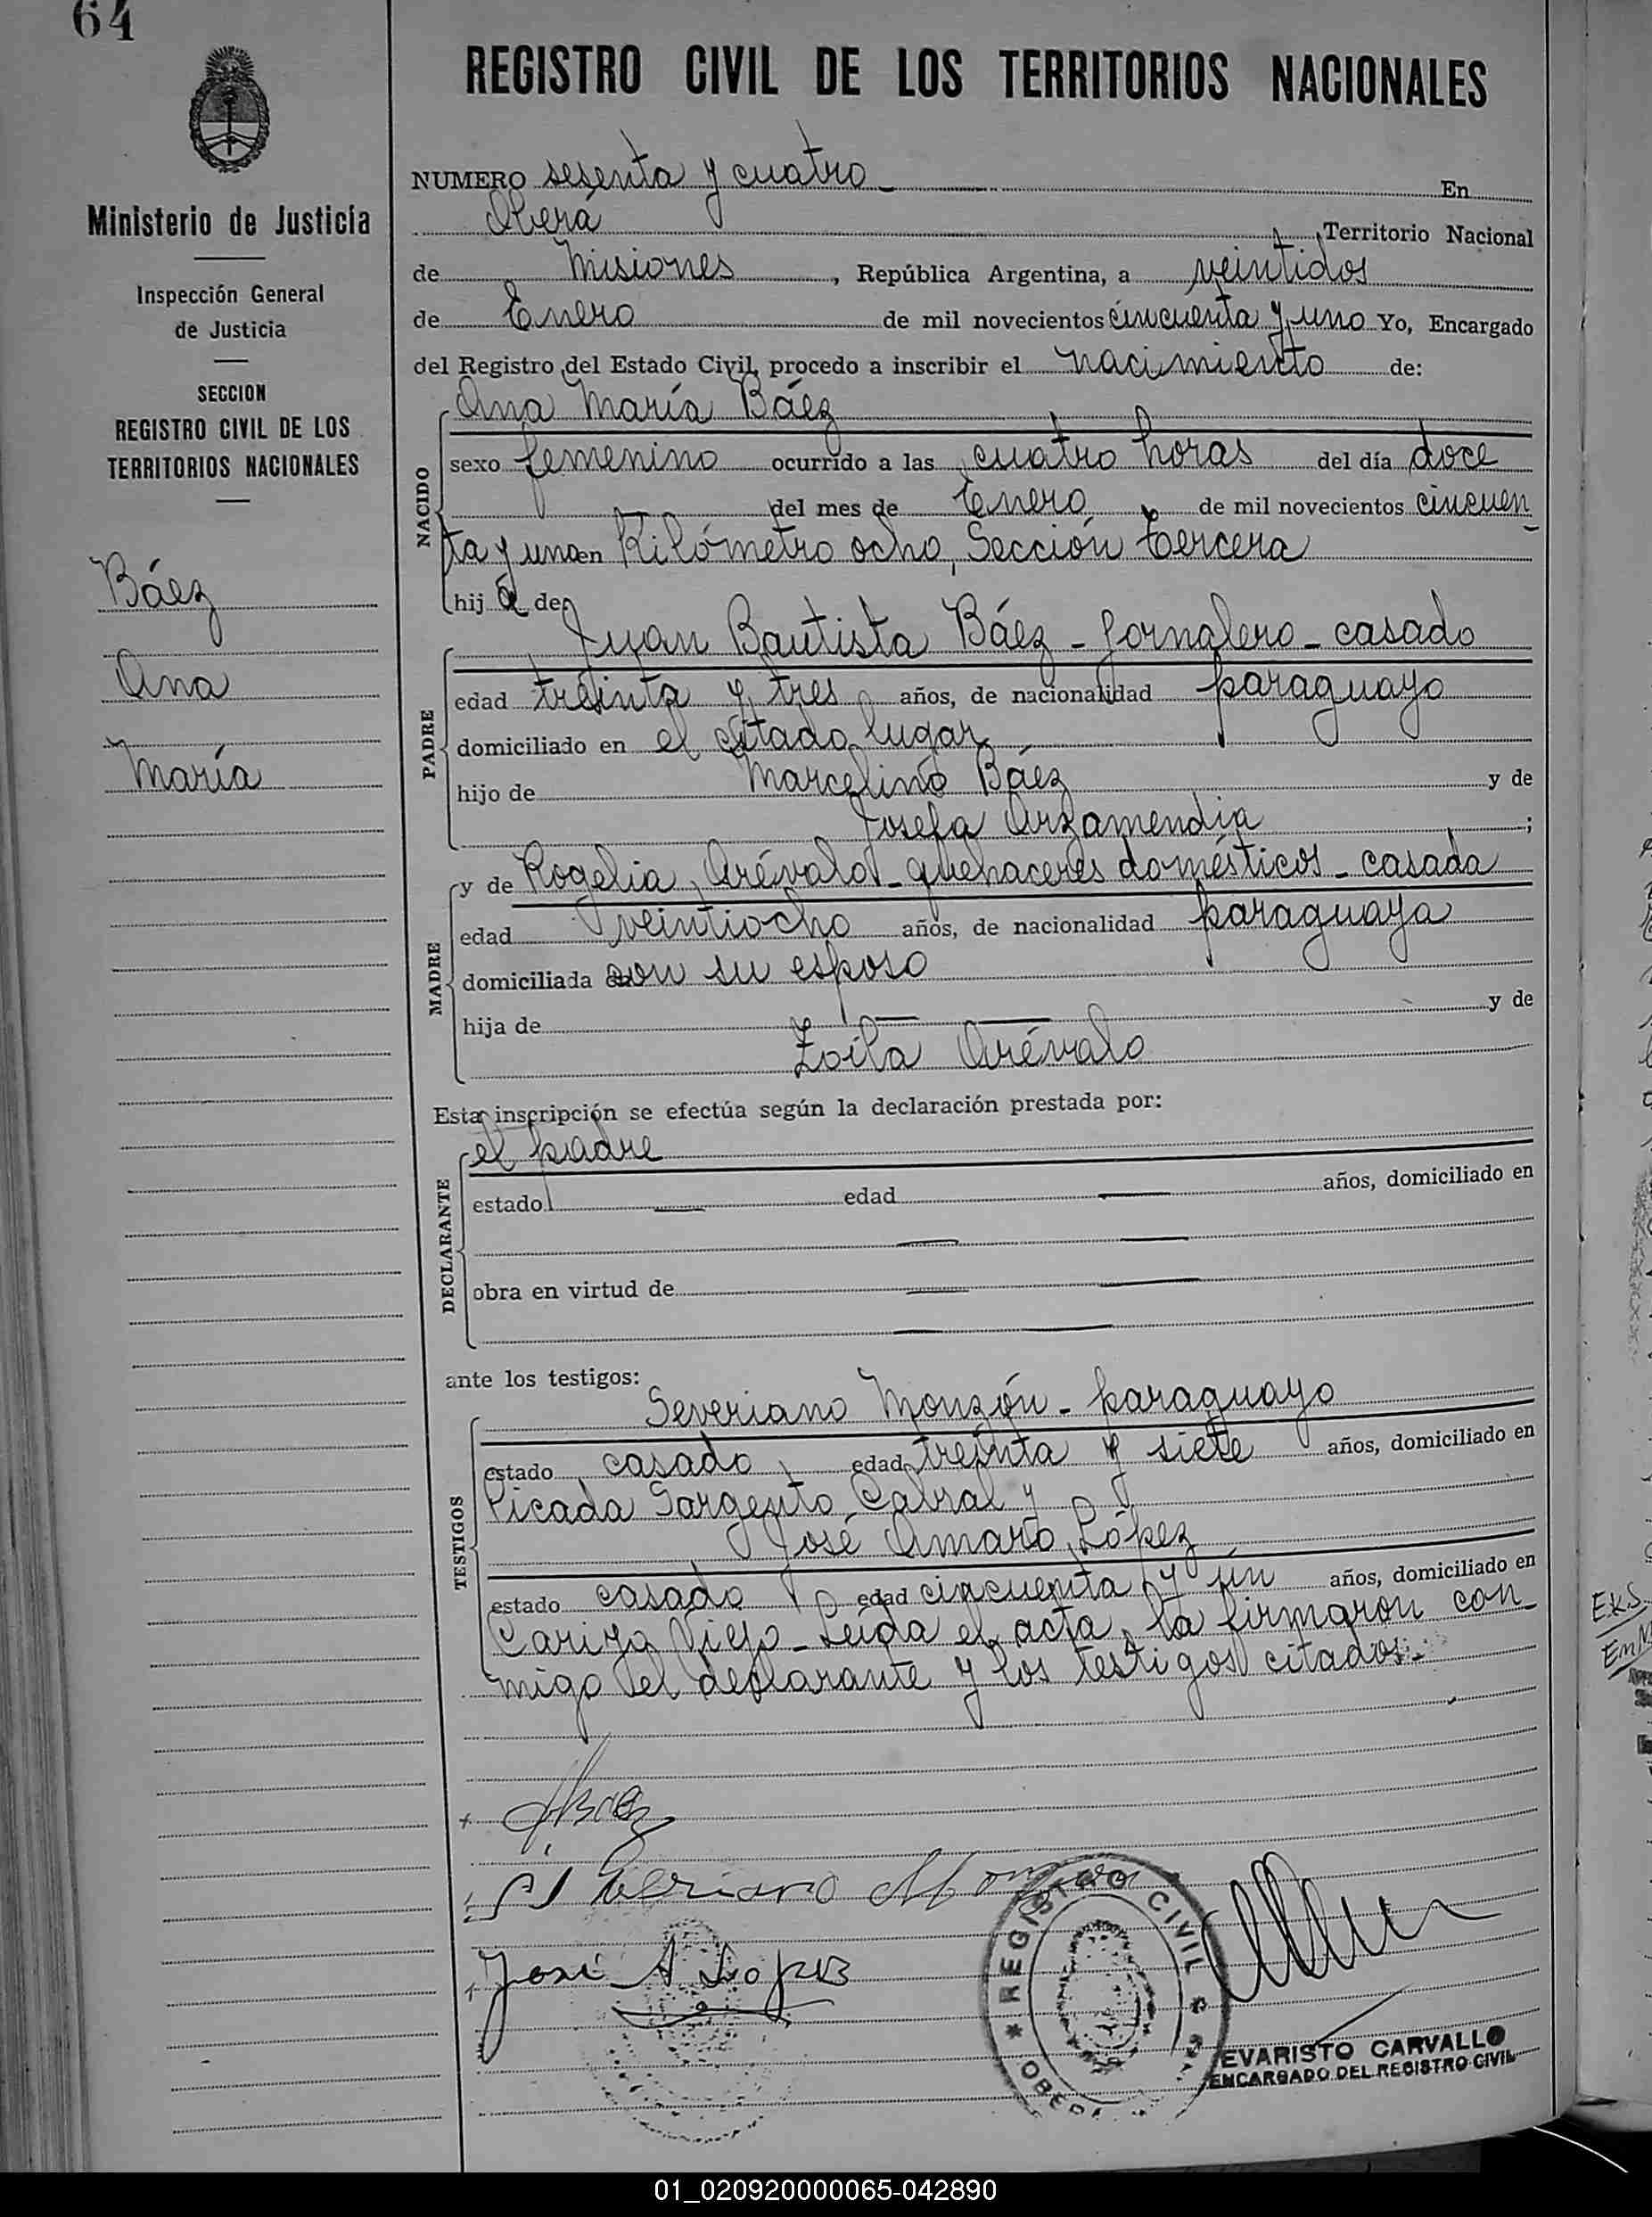 64
REGISTRO CIVIL DE LOS TERRITORIOS NACIONALES
Ministerio de Justicia
Inspección General
de Justicia
SECCION
REGISTRO CIVIL DE LOS
TERRITORIOS NACIONALES
Báez
Ana
María
NUMERO sesenta y cuatro En
Oberá Territorio Nacional
de Misiones, República Argentina, a veintidos
de Enero de mil novecientos cincuenta y uno Yo, Encargado
del Registro del Estado Civil, procedo a inscribir el nacimiento de:
NACIDO
Ana María Báez
sexo femenino ocurrido a las cuatro horas del día doce
del mes de Enero de mil novecientos cincuen
ta y uno en Kilómetro ocho, Sección tercera
hij a de
PADRE
Juan Bautista Báez - Jornalero - casado
edad treinta y tres años, de nacionalidad paraguayo
domiciliado en el citado lugar
hijo de Marcelino Báez y de
Josefa Arzamendia ;
MADRE
y de Rogelia Arévalo - quehaceres domésticos - casada
edad veintiocho años, de nacionalidad paraguaya
domiciliada con su esposo
hija de — — y de
Zoila Arévalo
Esta inscripción se efectúa según la declaración prestada por:
DECLARANTE
el padre
estado — edad — años, domiciliado en
— —
obra en virtud de — —
ante los testigos:
TESTIGOS
Severiano Monzón - paraguayo
estado casado edad treinta y siete años, domiciliado en
Picada Sargento Cabral y
José Amaro López
estado casado edad cincuenta y un años, domiciliado en
Viejo - Leída el acta, la firmaron con
migo el declarante y los testigos citados.-
JBaez
Severiano Monzon
José A Lopez
* REGISTRO CIVIL *
OBERA
EVARISTO CARVALLO
ENCARGADO DEL REGISTRO CIVIL
01_020920000065-042890